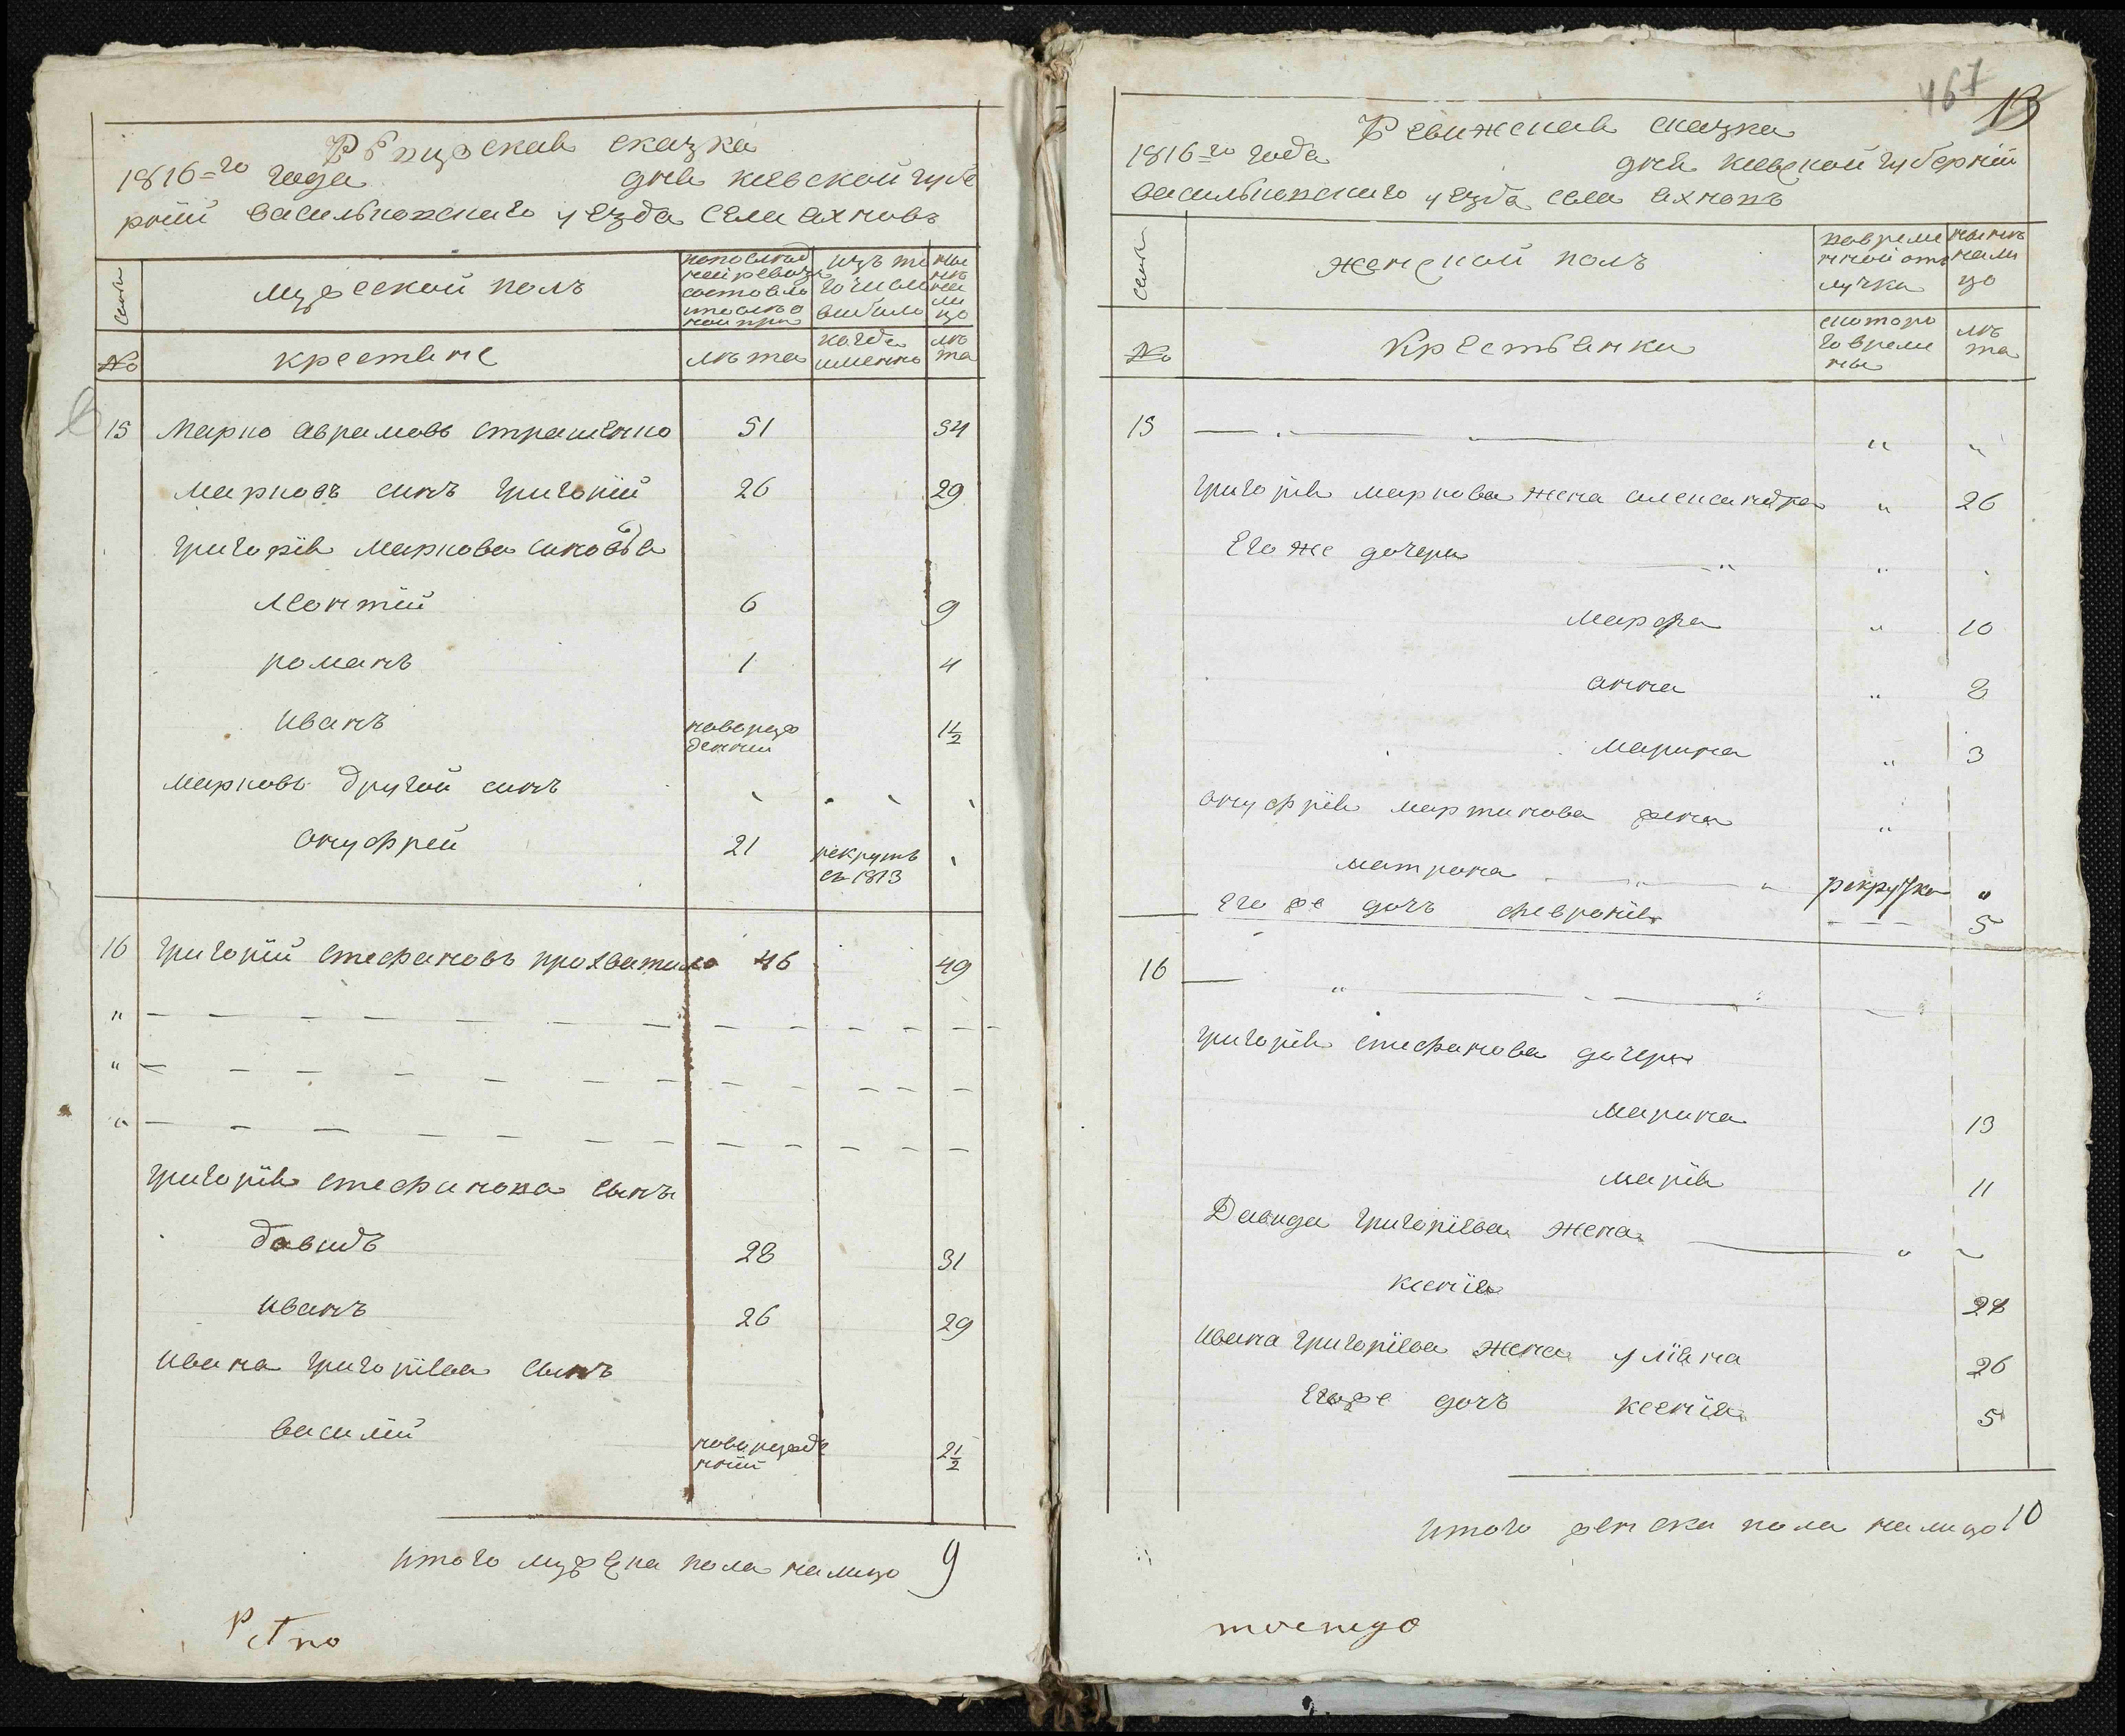 Ревизскаѧ сказка
1816=го года днѧ киевской губе
рній васильковскаго уезда села ахновъ
семьи
мужеской полъ
попослед
ней ревизи
состояло
изъ то
го числа
выбыло
ны
нѣ
на
ли
цо
№
крестяне
лѣта
когда
именно
лѣ
та
15 Марко аврамовъ страшенко 51 54
марковъ синъ григорій 26 29
григоріѧ маркова синовѧ
леонтій 6 9
романъ 1 4
иванъ новорож
денни 1 1/2
марковъ другой синъ
онуфрей 21 рекрутъ
съ 1813
16 григорій стефановъ прохватило 46 49
"
"
"
григоріѧ стефанова сынъ
давидъ 28 31
иванъ 26 29
ивана григоріева сынъ
василій новорожде
нній 2 1/2
итого мужеска пола налицо 9
467
13
Ревижскаѧ сказка
1816=го года днѧ киевской губерній
васильковскаго уезда села ахновъ
семьи
женской полъ
во време
нной отъ
лучки
нынѣ
нали
цо
№
крестьянки
скоторо
го време
ны
лѣ
та
15 " "
григоріѧ маркова жена александра " 26
его же дочери "
марфа " 10
анна " 8
марина " 3
онуфріѧ мартинова жена "
матрона рекрутка "
его же дочъ февроніѧ 5
16
григоріѧ стефанова дочери
марина 13
маріѧ 11
Давида григоріева жена "
ксеніѧ 28
ивана григоріева жена уліѧна 26
егоже дочъ ксеніѧ 5
итого женска пола налицо 10